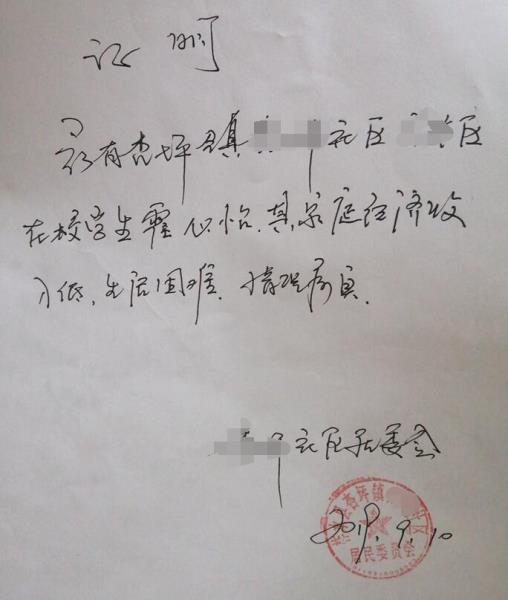 证明
兹有杏坪镇 社区 区
在校学生霍心怡,其家庭经济收
入低,生活困难,情况属实.
社区居委会
2019.9.10
杏坪镇
居民委员会